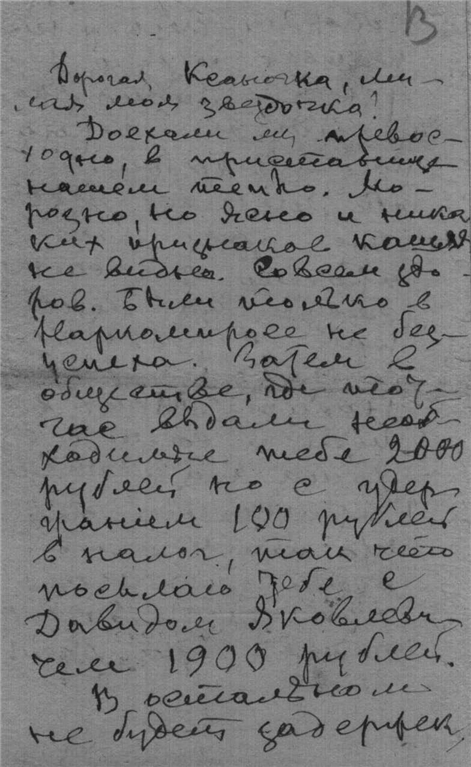 В
Дорогая Ксаночка, ми-
лая моя звездочка!
Доехали мы превос-
ходно, в пристанище
нашем тепло. Мо-
розно, но ясно и ника
ких признаков кашля
не видно. Совсем здо-
ров. Были только в
Наркомпросе не без
успеха. Затем в
обществе, где тот-
час выдали необ
ходимые тебе 2000
рублей но с удер
жанием 100 рублей
в налог, так что
посылаю тебе с
Давидом Яковлеви-
чем 1900 рублей.
В остальном
не будет задержек